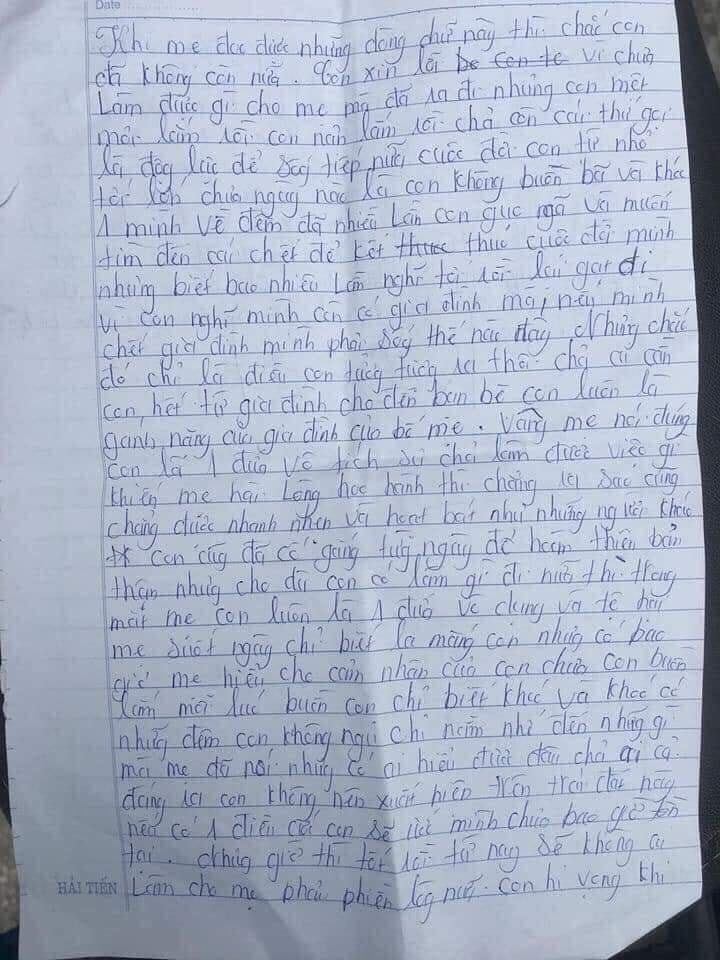 Date
Khi mẹ đọc được những dòng chữ này thì chắc con
đã không còn nữa. Con xin lỗi be con te vì chưa
Làm được gì cho mẹ mà đã ra đi nhưng con mệt
mỏi lắm rồi con nản lắm rồi chả còn cái thứ gọi
là động lực để sống tiếp nữa cuộc đời con từ nhỏ
tới lớn chưa ngày nào là con không buồn bã và khóc
1 mình về đêm đã nhiều Lần con gục ngã và muốn
tìm đến cái chết để kết thươc thúc cuộc đời mình
nhưng biết bao nhiêu Lần nghĩ tới rồi lại gạt đi
vì con nghĩ mình còn có gia đình mà, nếu mình
chết gia đình mình phải sống thế nào đây Nhưng chắc
đó chỉ là điều con tưởng tượng ra thôi chả ai cần
con, hết từ gia đình cho đến bạn bè con luôn là
gánh nặng của gia đình của bố mẹ. Vâng mẹ nói đúng
con là 1 đứa vô tích sự chả làm được việc gì
khiến mẹ hài Lòng học hành thì chẳng ra sao cũng
chẳng được nhanh nhẹn và hoạt bát như những người khác
con cũng đã cố gắng từng ngày để hoàn thiện bản
thân nhưng cho dù con có làm gì đi nữa thì trong
mắt mẹ con luôn là 1 đứa vô dụng và tệ hại
mẹ suốt ngày chỉ biết la mắng con nhưng có bao
giờ mẹ hiểu cho cảm nhận của con chưa con buồn
lắm mỗi lúc buồn con chỉ biết khóc và khóc có
những đêm con không ngủ chỉ nằm nhớ đến những gì
mà mẹ đã nói nhưng có ai hiểu được đâu chả ai cả
đáng ra con không nên xuất hiện trên trái đất này
nếu có 1 điều ước con sẽ ước mình chưa bao giờ tồn
tại. Nhưng giờ thì tốt rồi từ nay sẽ không ai
HẢI TIẾN Làm cho mẹ phải phiền lòng nữa. Con hi vọng khi